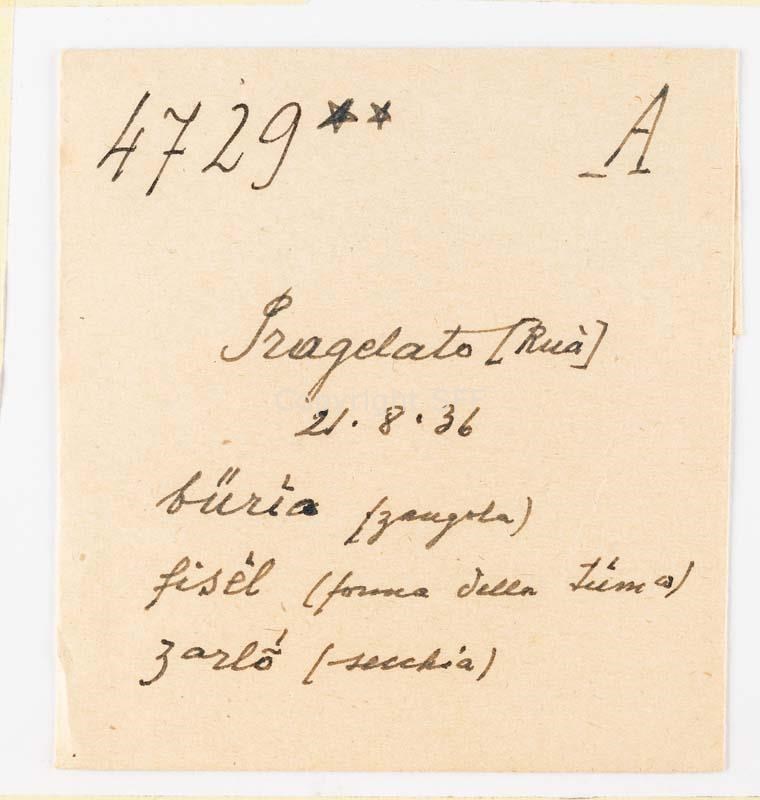 4729** A
Pragelato [Ruà]
21.8.36
bűría (zangola)
fisèl (forma della túma)
zarló (secchia)